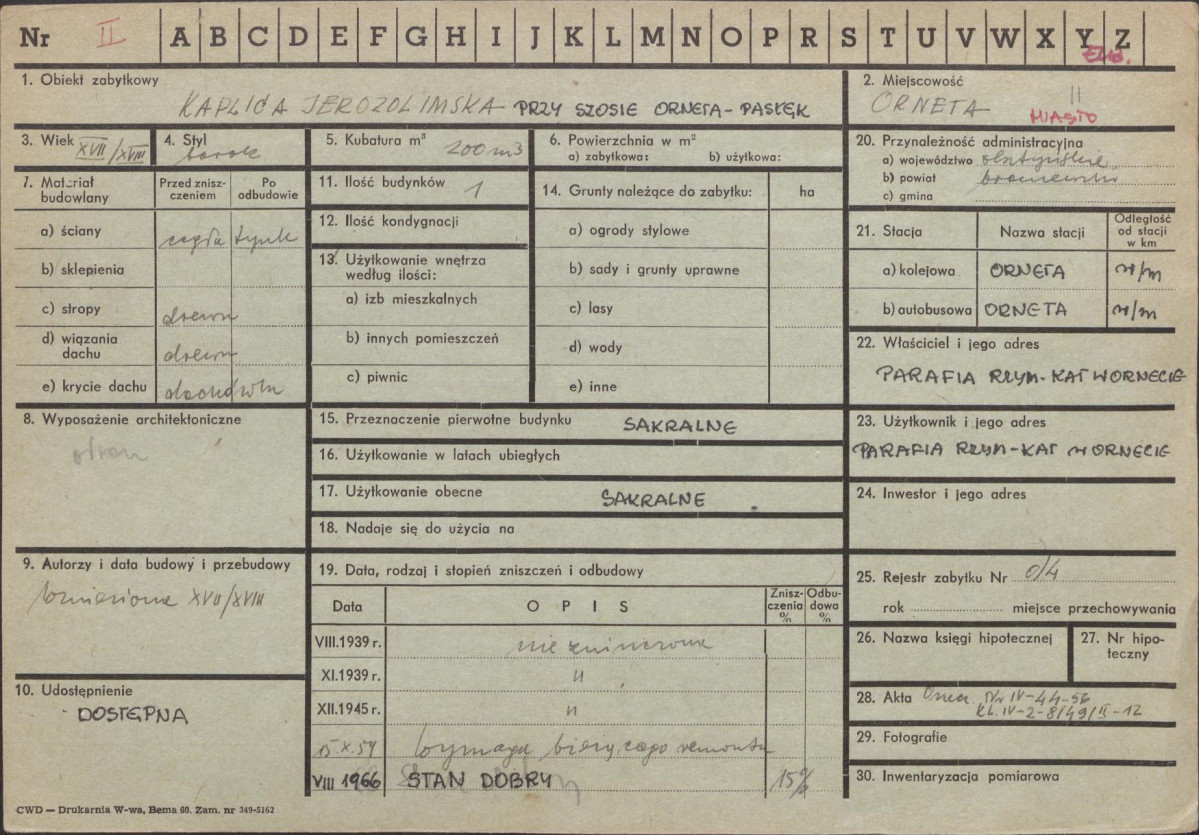 Nr II A B C D E F G H I J K L M N O P R S T U V W X Y Z
Elb.
1. Obiekt zabytkowy
KAPLICA JEROZOLIMSKA PRZY SZOSIE ORNETA-PASŁĘK
2. Miejscowość
ORNETA II
MIASTO
3. Wiek XVII/XVIII
4. Styl barok
5. Kubatura m³ 200 m3
6. Powierzchnia w m²
a) zabytkowa: b) użytkowa:
7. Materiał budowlany
Przed zniszczeniem
Po odbudowie
a) ściany cegła tynk
b) sklepienia
c) stropy drewn
d) wiązania dachu drewn
e) krycie dachu dachówka
8. Wyposażenie architektoniczne
ołtarz
9. Autorzy i data budowy i przebudowy
Wzniesiona XVII/XVIII
10. Udostępnienie
DOSTĘPNA
11. Ilość budynków 1
12. Ilość kondygnacji
13. Użytkowanie wnętrza
według ilości:
a) izb mieszkalnych
b) innych pomieszczeń
c) piwnic
14. Grunty należące do zabytku: ha
a) ogrody stylowe
b) sady i grunty uprawne
c) lasy
d) wody
e) inne
15. Przeznaczenie pierwotne budynku SAKRALNE
16. Użytkowanie w latach ubiegłych
17. Użytkowanie obecne SAKRALNE
18. Nadaje się do użycia na
19. Data, rodzaj i stopień zniszczeń i odbudowy
Data OPIS Zniszczenia % Odbudowa %
VIII.1939 r. niezniszczona
XI.1939 r. "
XII.1945 r. "
15.X.59 Wymaga bieżącego remontu
VIII 1966 STAN DOBRY 15%
20. Przynależność administracyjna
a) województwo olsztyńskie
b) powiat braniewski
c) gmina
21. Stacja Nazwa stacji Odległość od stacji w km
a) kolejowa ORNETA w/m
b) autobusowa ORNETA w/m
22. Właściciel i jego adres
PARAFIA RZYM-KAT W ORNECIE
23. Użytkownik i jego adres
PARAFIA RZYM-KAT W ORNECIE
24. Inwestor i jego adres
25. Rejestr zabytku Nr 0/4
rok miejsce przechowywania
26. Nazwa księgi hipotecznej
27. Nr hipoteczny
28. Akta Nr IV-44-56
KL.IV-2-8/49/II-12
29. Fotografie
30. Inwentaryzacja pomiarowa
CWD — Drukarnia W-wa, Bema 60. Zam. nr 349-5162